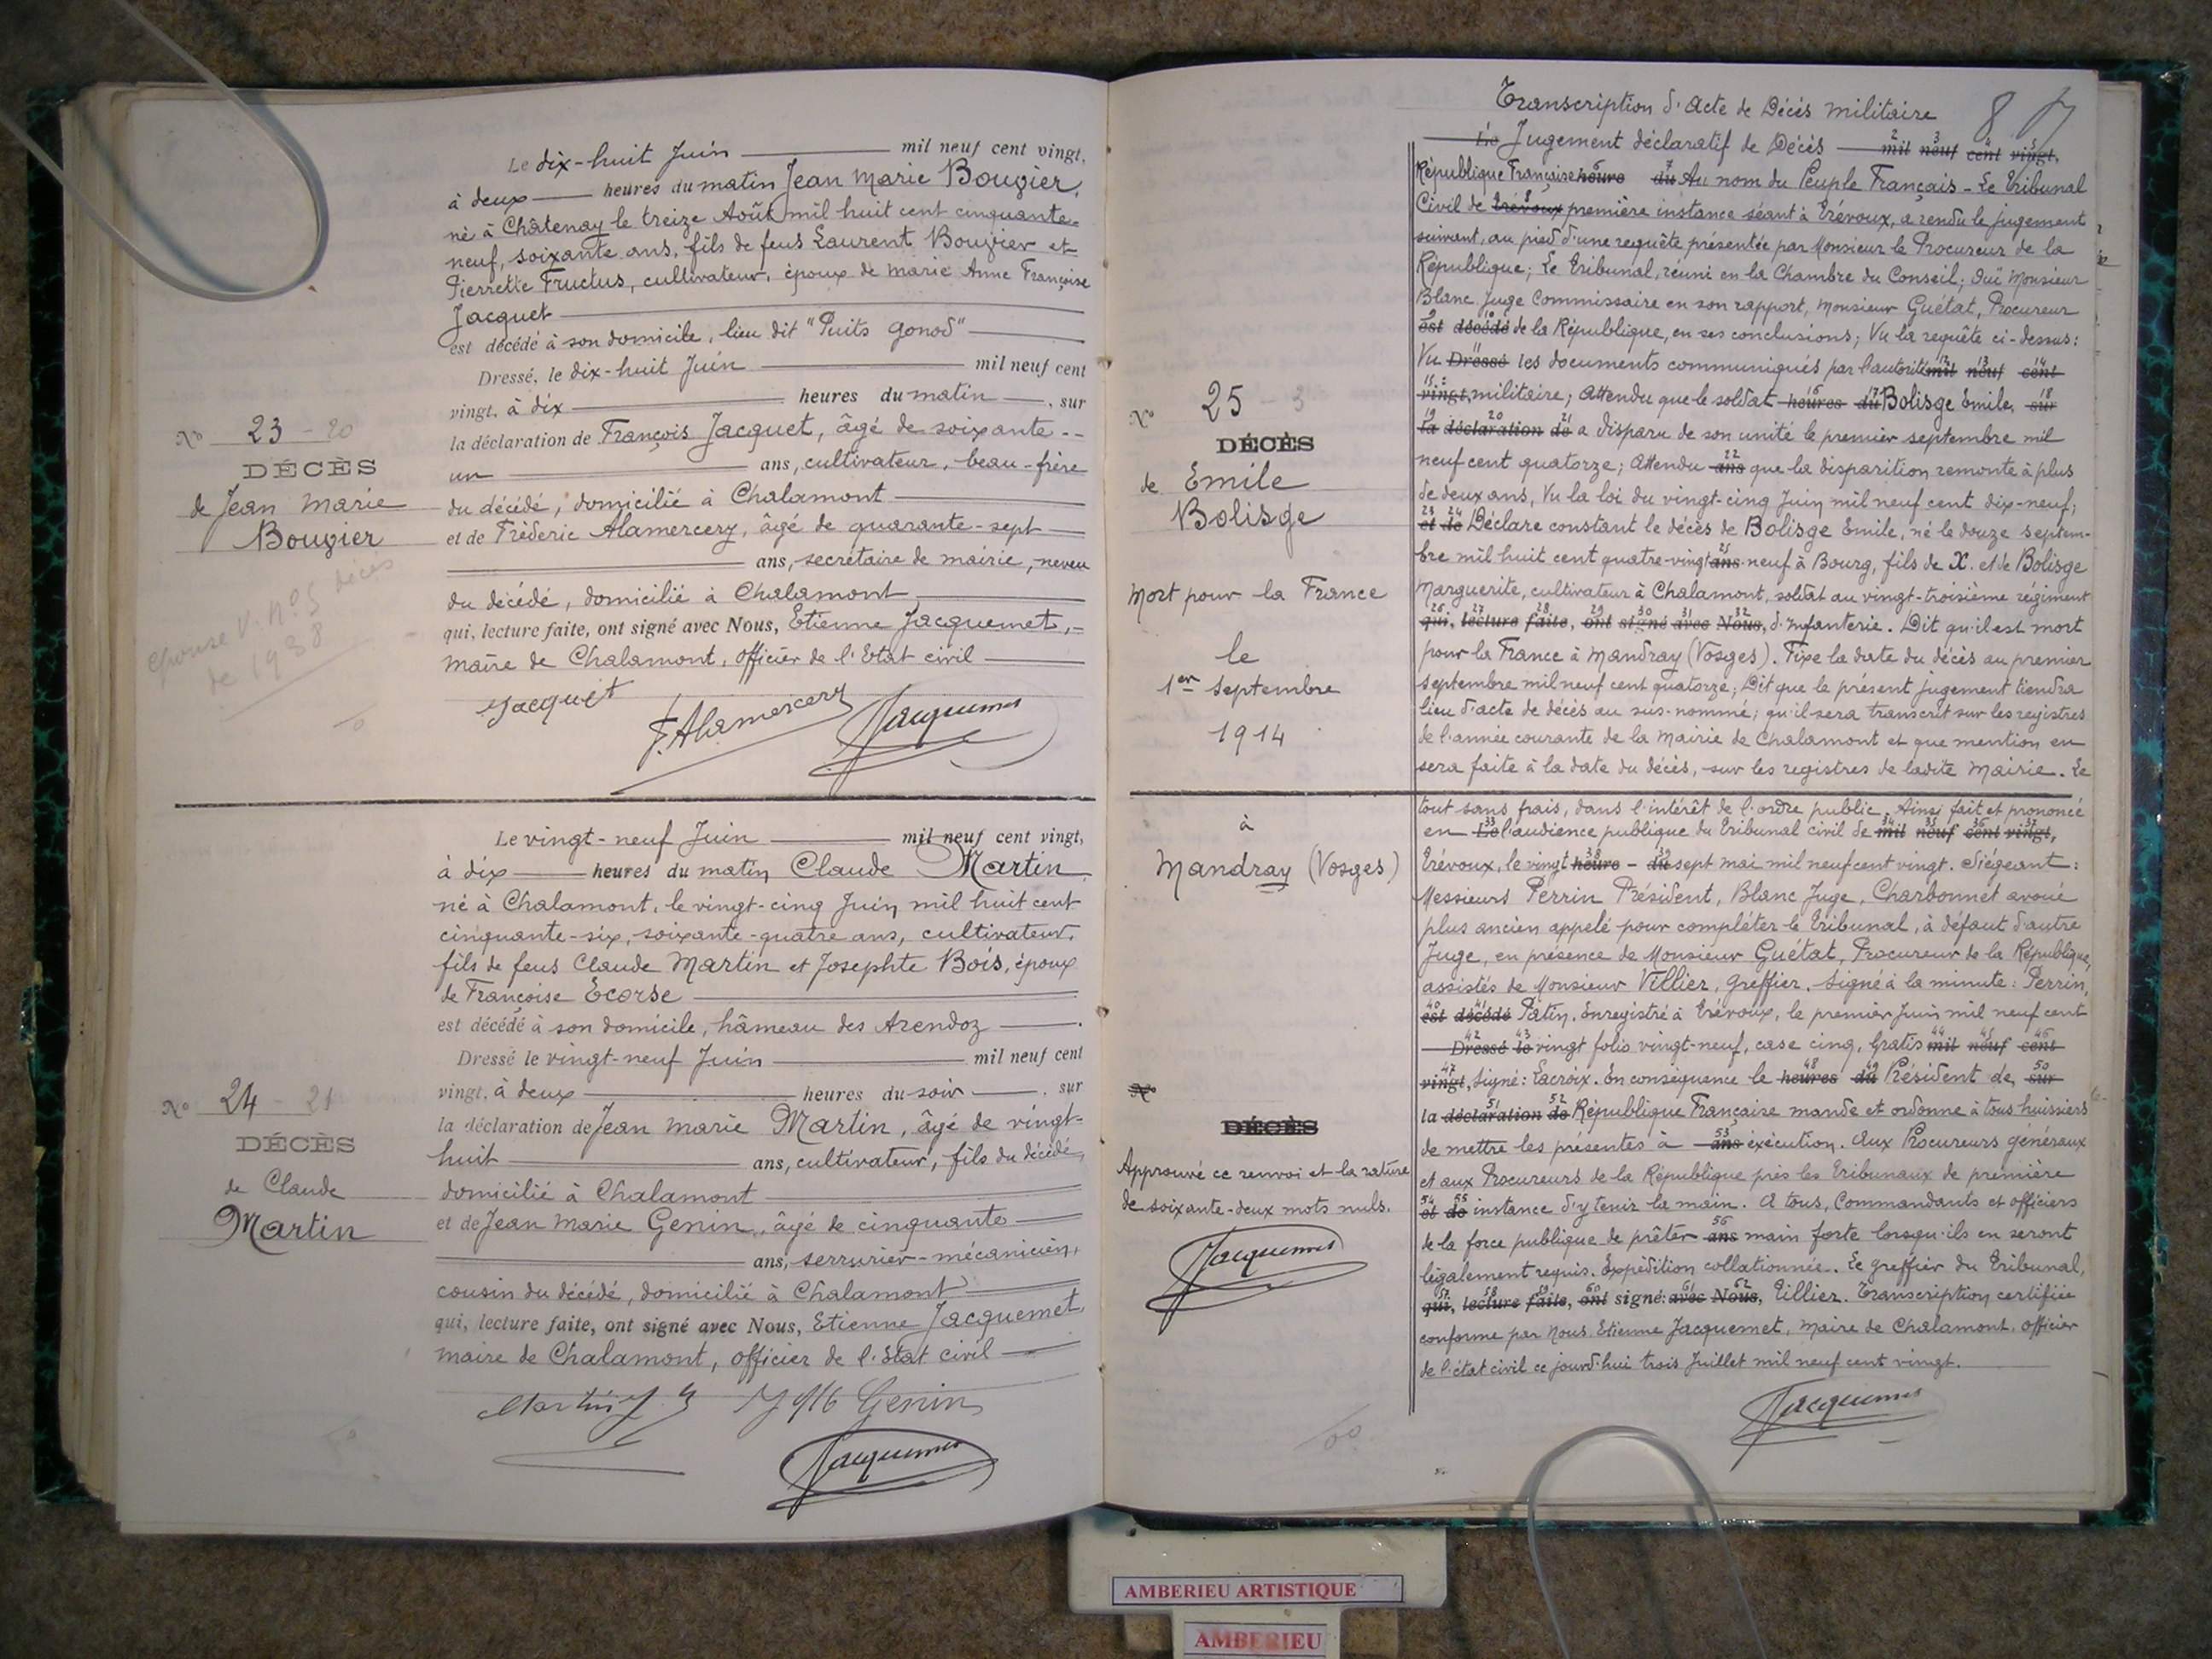 Le dix-huit Juin mil neuf cent vingt,
à deux heures du matin Jean Marie Bouvier,
né à Châtenay le treize Août mil huit cent cinquante-
neuf, soixante ans, fils de feus Laurent Bouvier et
Pierrette Fructus, cultivateur, époux de Marie Anne Françoise
Jacquet
est décédé à son domicile, lieu dit "Puits Gonod"
Dressé, le dix-huit Juin mil neuf cent
vingt, à dix heures du matin, sur
la déclaration de François Jacquet, âgé de soixante--
un ans, cultivateur, beau-frère
du décédé, domicilié à Chalamont
et de Fréderic Alamercery, âgé de quarante-sept
ans, secrétaire de mairie, neveu
du décédé, domicilié à Chalamont
qui, lecture faite, ont signé avec Nous, Etienne Jacquemet,
maire de Chalamont, officier de l'Etat civil
Jacquet
F. Alamercery Jacquemet
No 23 - 20
DÉCÈS
de Jean Marie
Bouvier
épouse V. No 5 décès
de 1938
Le vingt-neuf Juin mil neuf cent vingt,
à dix heures du matin Claude Martin
né à Chalamont, le vingt-cinq Juin mil huit cent
cinquante-six, soixante-quatre ans, cultivateur,
fils de feus Claude Martin et Josephte Bois, époux
de Françoise Ecorse
est décédé à son domicile, hâmeau des Arendoz
Dressé le vingt-neuf Juin mil neuf cent
vingt, à deux heures du soir, sur
la déclaration de Jean Marie Martin, âgé de vingt-
huit ans, cultivateur, fils du décédé,
domicilié à Chalamont
et de Jean Marie Genin, âgé de cinquante
ans, serrurier-mécanicien,
cousin du décédé, domicilié à Chalamont
qui, lecture faite, ont signé avec Nous, Etienne Jacquemet,
maire de Chalamont, officier de l'Etat civil
Martin Genin
Jacquemet
No 24 - 21
DÉCÈS
de Claude
Martin
Transcription d'Acte de Décès Militaire 8
Le Jugement déclaratif de Décès mil neuf cent vingt,
République Française heure du Au nom du Peuple Français - Le Tribunal
Civil de Trévoux première instance séant à Trévoux, a rendu le jugement
suivant, au pied d'une requête présentée par Monsieur le Procureur de la
République; Le Tribunal, réuni en la Chambre du Conseil; Ouï Monsieur
Blanc Juge Commissaire en son rapport, Monsieur Guétat, Procureur
est décédé de la République, en ses conclusions; Vu la requête ci-dessus:
Vu Dressé les documents communiqués par l'autorité mil neuf cent
vingt, militaire; Attendu que le soldat heures du Bolisge Emile, sur
la déclaration de a disparu de son unité le premier septembre mil
neuf cent quatorze; Attendu ans que la disparition remonte à plus
de deux ans, Vu la loi du vingt-cinq Juin mil neuf cent dix-neuf;
et de Déclare constant le décès de Bolisge Emile, né le douze septem-
bre mil huit cent quatre-vingt ans neuf à Bourg, fils de X. et de Bolisge
Marguerite, cultivateur à Chalamont, soldat au vingt-troisième régiment
qui, lecture faite, ont signé avec Nous, d'Infanterie. Dit qu'il est mort
pour la France à Mandray (Vosges). Fixe la date du décès au premier
septembre mil neuf cent quatorze; Dit que le présent jugement tiendra
lieu d'acte de décès au sus-nommé; qu'il sera transcrit sur les registres
de l'année courante de la Mairie de Chalamont et que mention en
sera faite à la date du décès, sur les registres de ladite Mairie. Le
tout sans frais, dans l'intérêt de l'ordre public. Ainsi fait et prononcé
en Le l'audience publique du Tribunal civil de mil neuf cent vingt,
Trévoux, le vingt heure - du sept mai mil neuf cent vingt. Siégeant:
Messieurs Perrin Président, Blanc Juge, Charbonnet avoué
plus ancien appelé pour compléter le Tribunal, à défaut d'autre
Juge, en présence de Monsieur Guétat, Procureur de la République,
assistés de Monsieur Villier, greffier. Signé à la minute: Perrin,
est décédé Patin. Enregistré à Trévoux, le premier Juin mil neuf cent
Dressé le vingt folio vingt-neuf, case cinq, Gratis mil neuf cent
vingt, Signé: Lacroix. En conséquence le heures du Président de, sur
la déclaration de République Française mande et ordonne à tous huissiers
de mettre les présentes à ans exécution. Aux Procureurs généraux
et aux Procureurs de la République près les Tribunaux de première
et de instance d'y tenir la main. A tous, Commandants et officiers
de la force publique de prêter ans main forte lorsqu'ils en seront
légalement requis. Expédition collationnée. Le greffier du Tribunal,
qui, lecture faite, ont signé: avec Nous, Tillier. Transcription certifiée
conforme par Nous Etienne Jacquemet, Maire de Chalamont, officier
de l'état civil ce jourd'hui trois Juillet mil neuf cent vingt.
Jacquemet
No 25 - 3
DÉCÈS
de Emile
Bolisge
Mort pour la France
le
1er Septembre
1914
à
Mandray (Vosges)
No
DÉCÈS
Approuvé ce renvoi et la rature
de soixante-deux mots nuls.
Jacquemet
AMBERIEU ARTISTIQUE
AMBERIEU